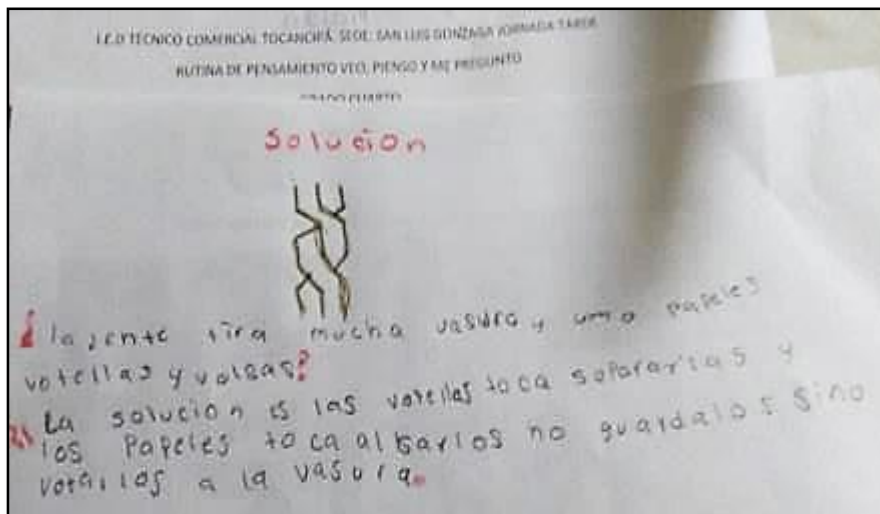 I.E.D TECNICO COMERCIAL TOCANCIPÁ. SEDE: SAN LUIS GONZAGA JORNADA TARDE
RUTINA DE PENSAMIENTO VEO, PIENSO Y ME PREGUNTO
GRADO CUARTO
Solucion
¿la jente tira mucha vasura y papeles
votellas y volsas?
La solucion es las votellas toca separarlas y
los papeles toca alsarlos no guardalos sino
votarlos a la vasura.